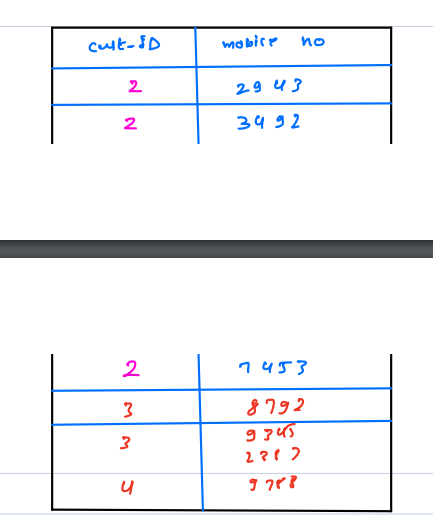 cust-ID mobile no
2 2943
2 3492
2 7453
3 8792
3 9345
4